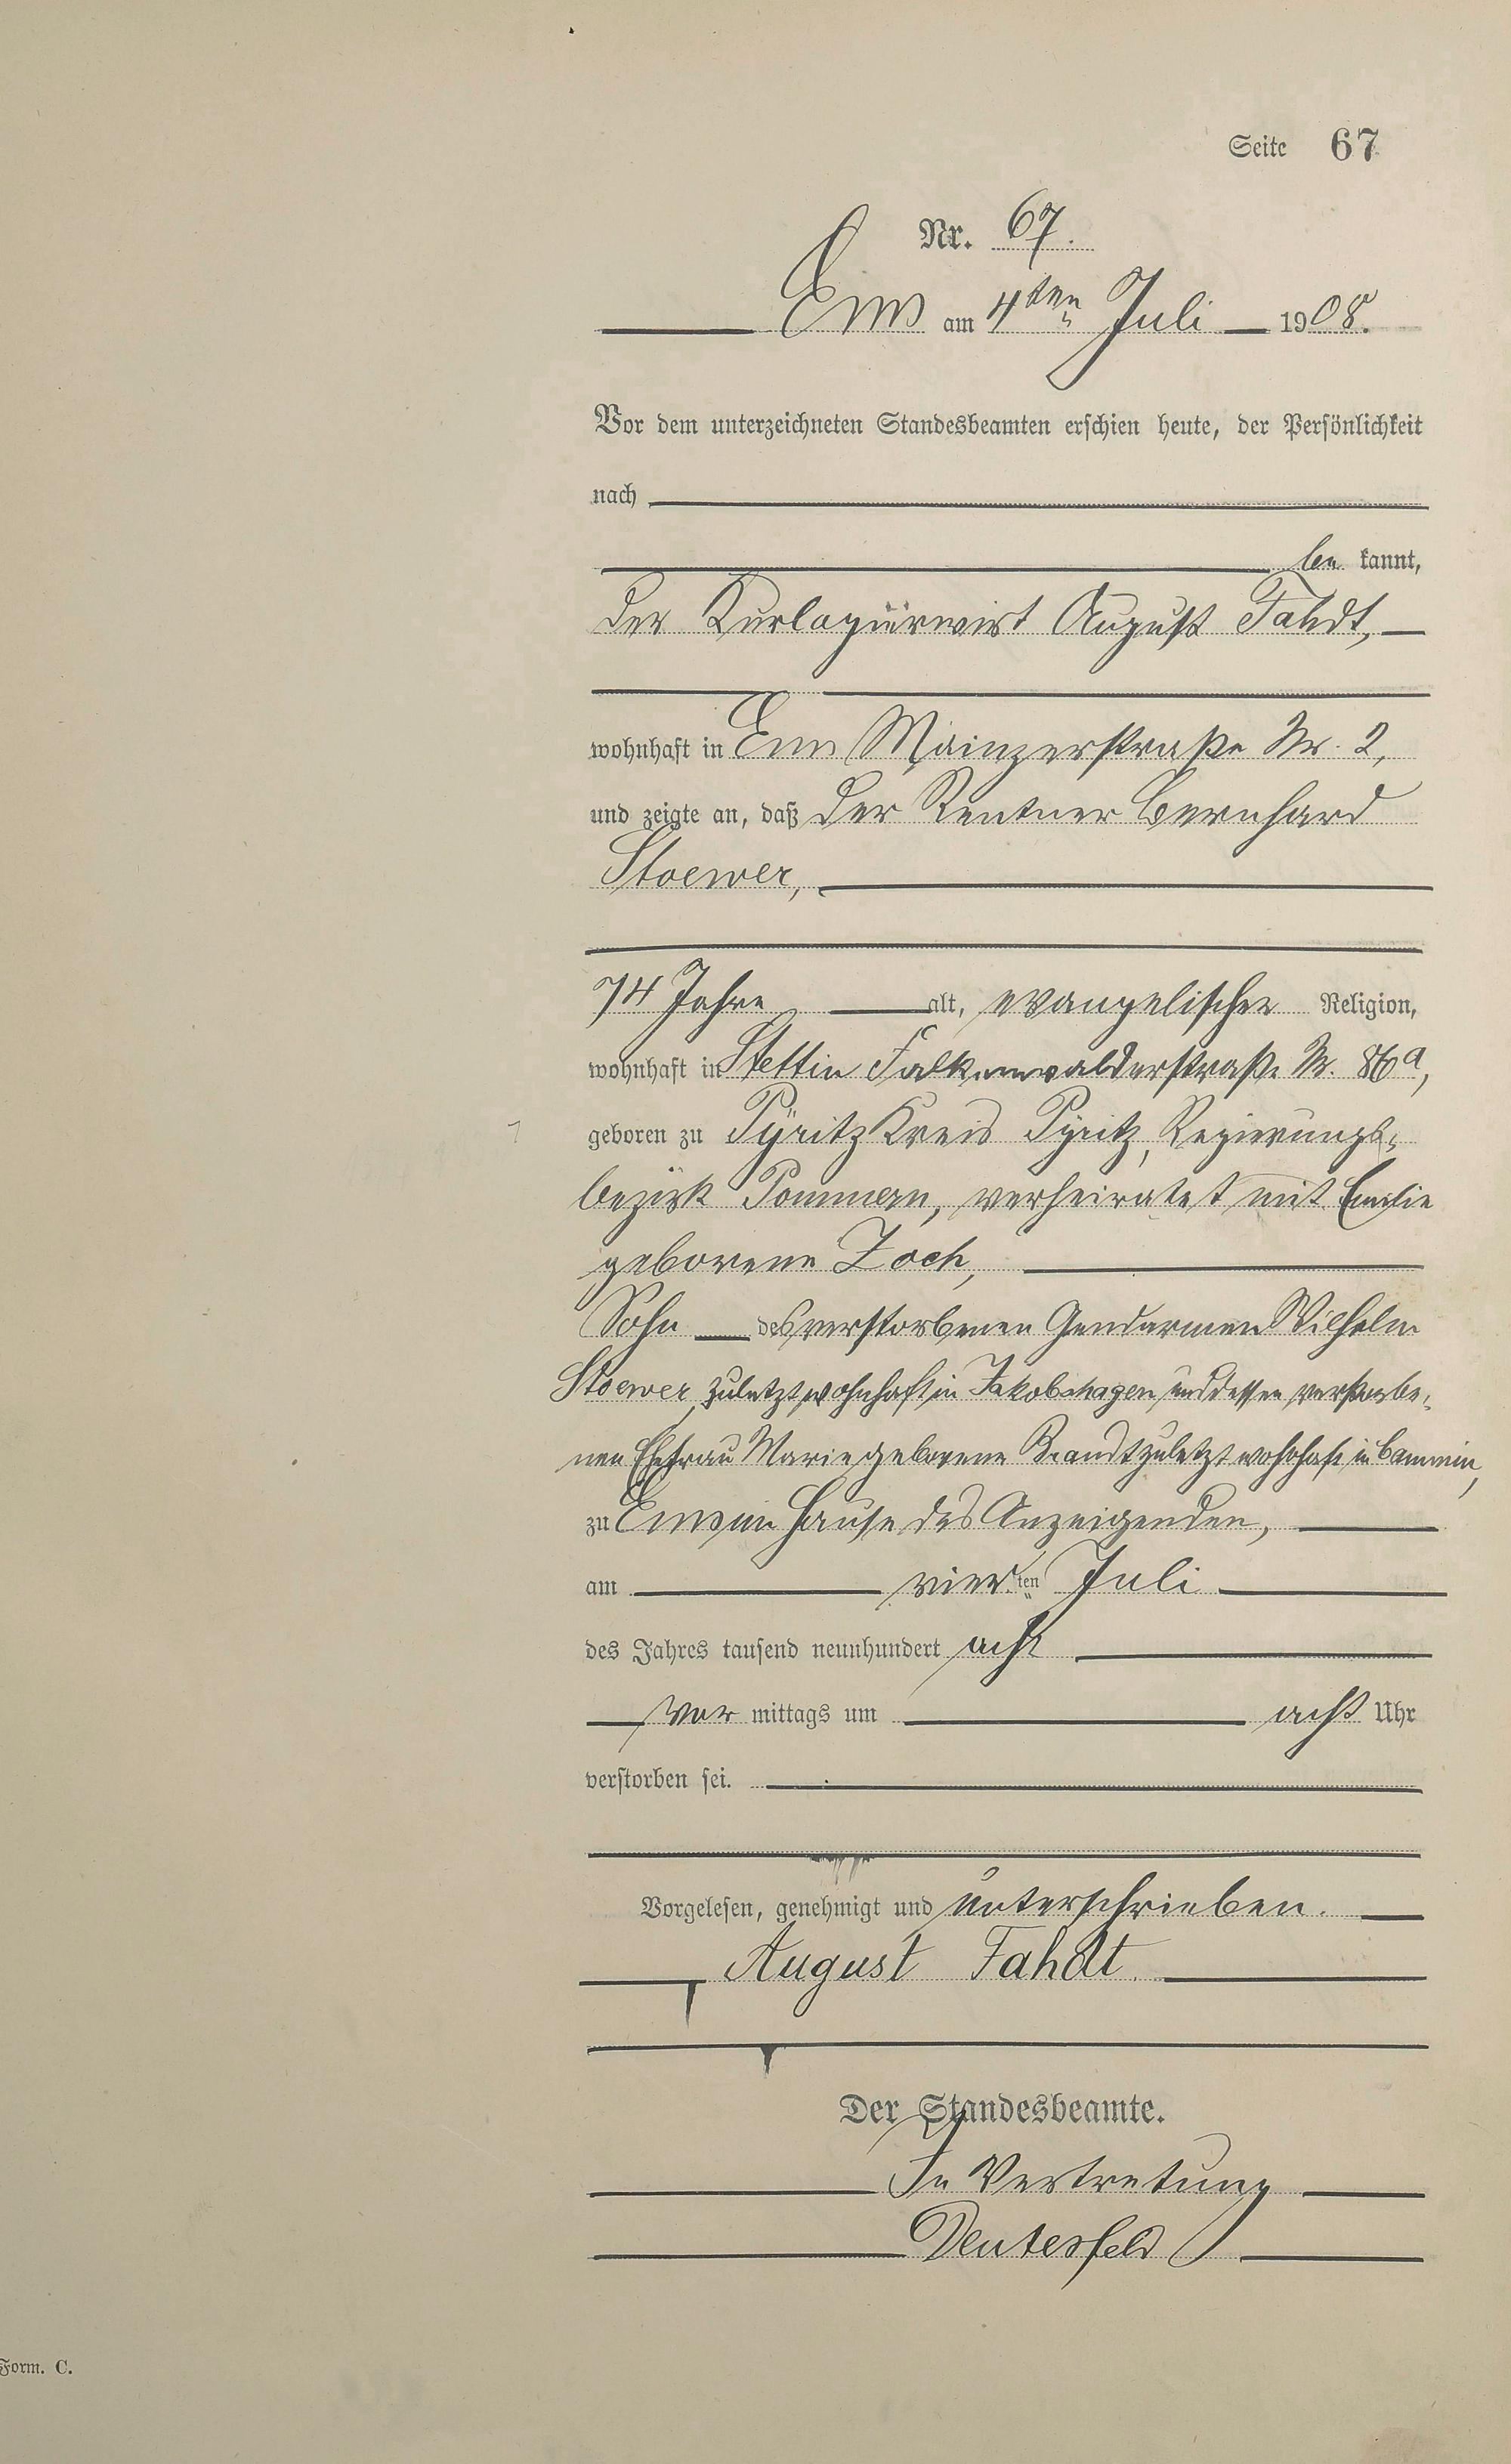 Seite 67
Nr. 67.
Ems am 4ten Juli 1908.
Vor dem unterzeichneten Standesbeamten erschien heute, der Persönlichkeit
nach
be kannt,
der Kurlogierwirt August Fahdt,
wohnhaft in Ems Mainzerstraße Nr. 2,
und zeigte an, daß der Rentner Bernhard
Stoewer,
74 Jahre alt, evangelischer Religion,
wohnhaft in Stettin Falkenwalderstraße Nr. 86a,
geboren zu Pyritz Kreis Pyritz, Regierungs-
bezirk Pommern, verheiratet mit Emilie
geborene Zoch,
Sohn des verstorbenen Gendarmen Wilhelm
Stoewer, zuletzt wohnhaft in Jakobshagen und dessen verstorbe-
nen Ehefrau Marie geborene Brandt zuletzt wohnhaft in Cammin,
zu Ems im Hause des Anzeigenden,
am vierten Juli
des Jahres tausend neunhundert acht
Vor mittags um acht Uhr
verstorben sei.
Vorgelesen, genehmigt und unterschrieben.
August Fahdt.
Der Standesbeamte.
In Vertretung
Deutesfeld
Form. C.